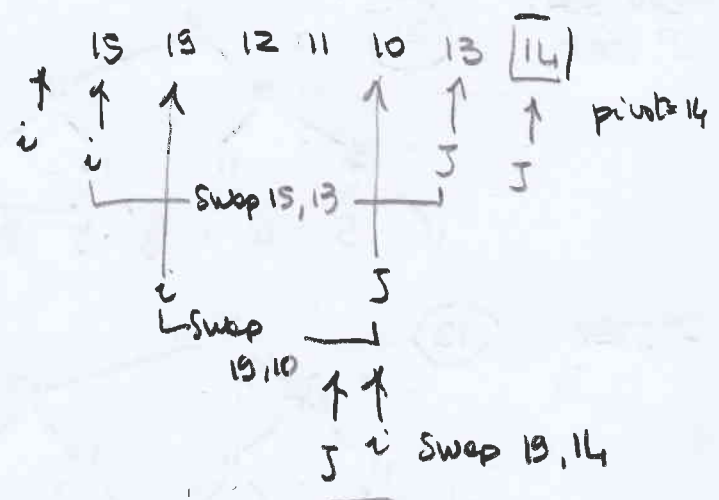 15 19 12 11 10 13 14
pivot=14
i i J J
Swap 15, 13
i J
Swap
19, 10
J i Swap 19, 14